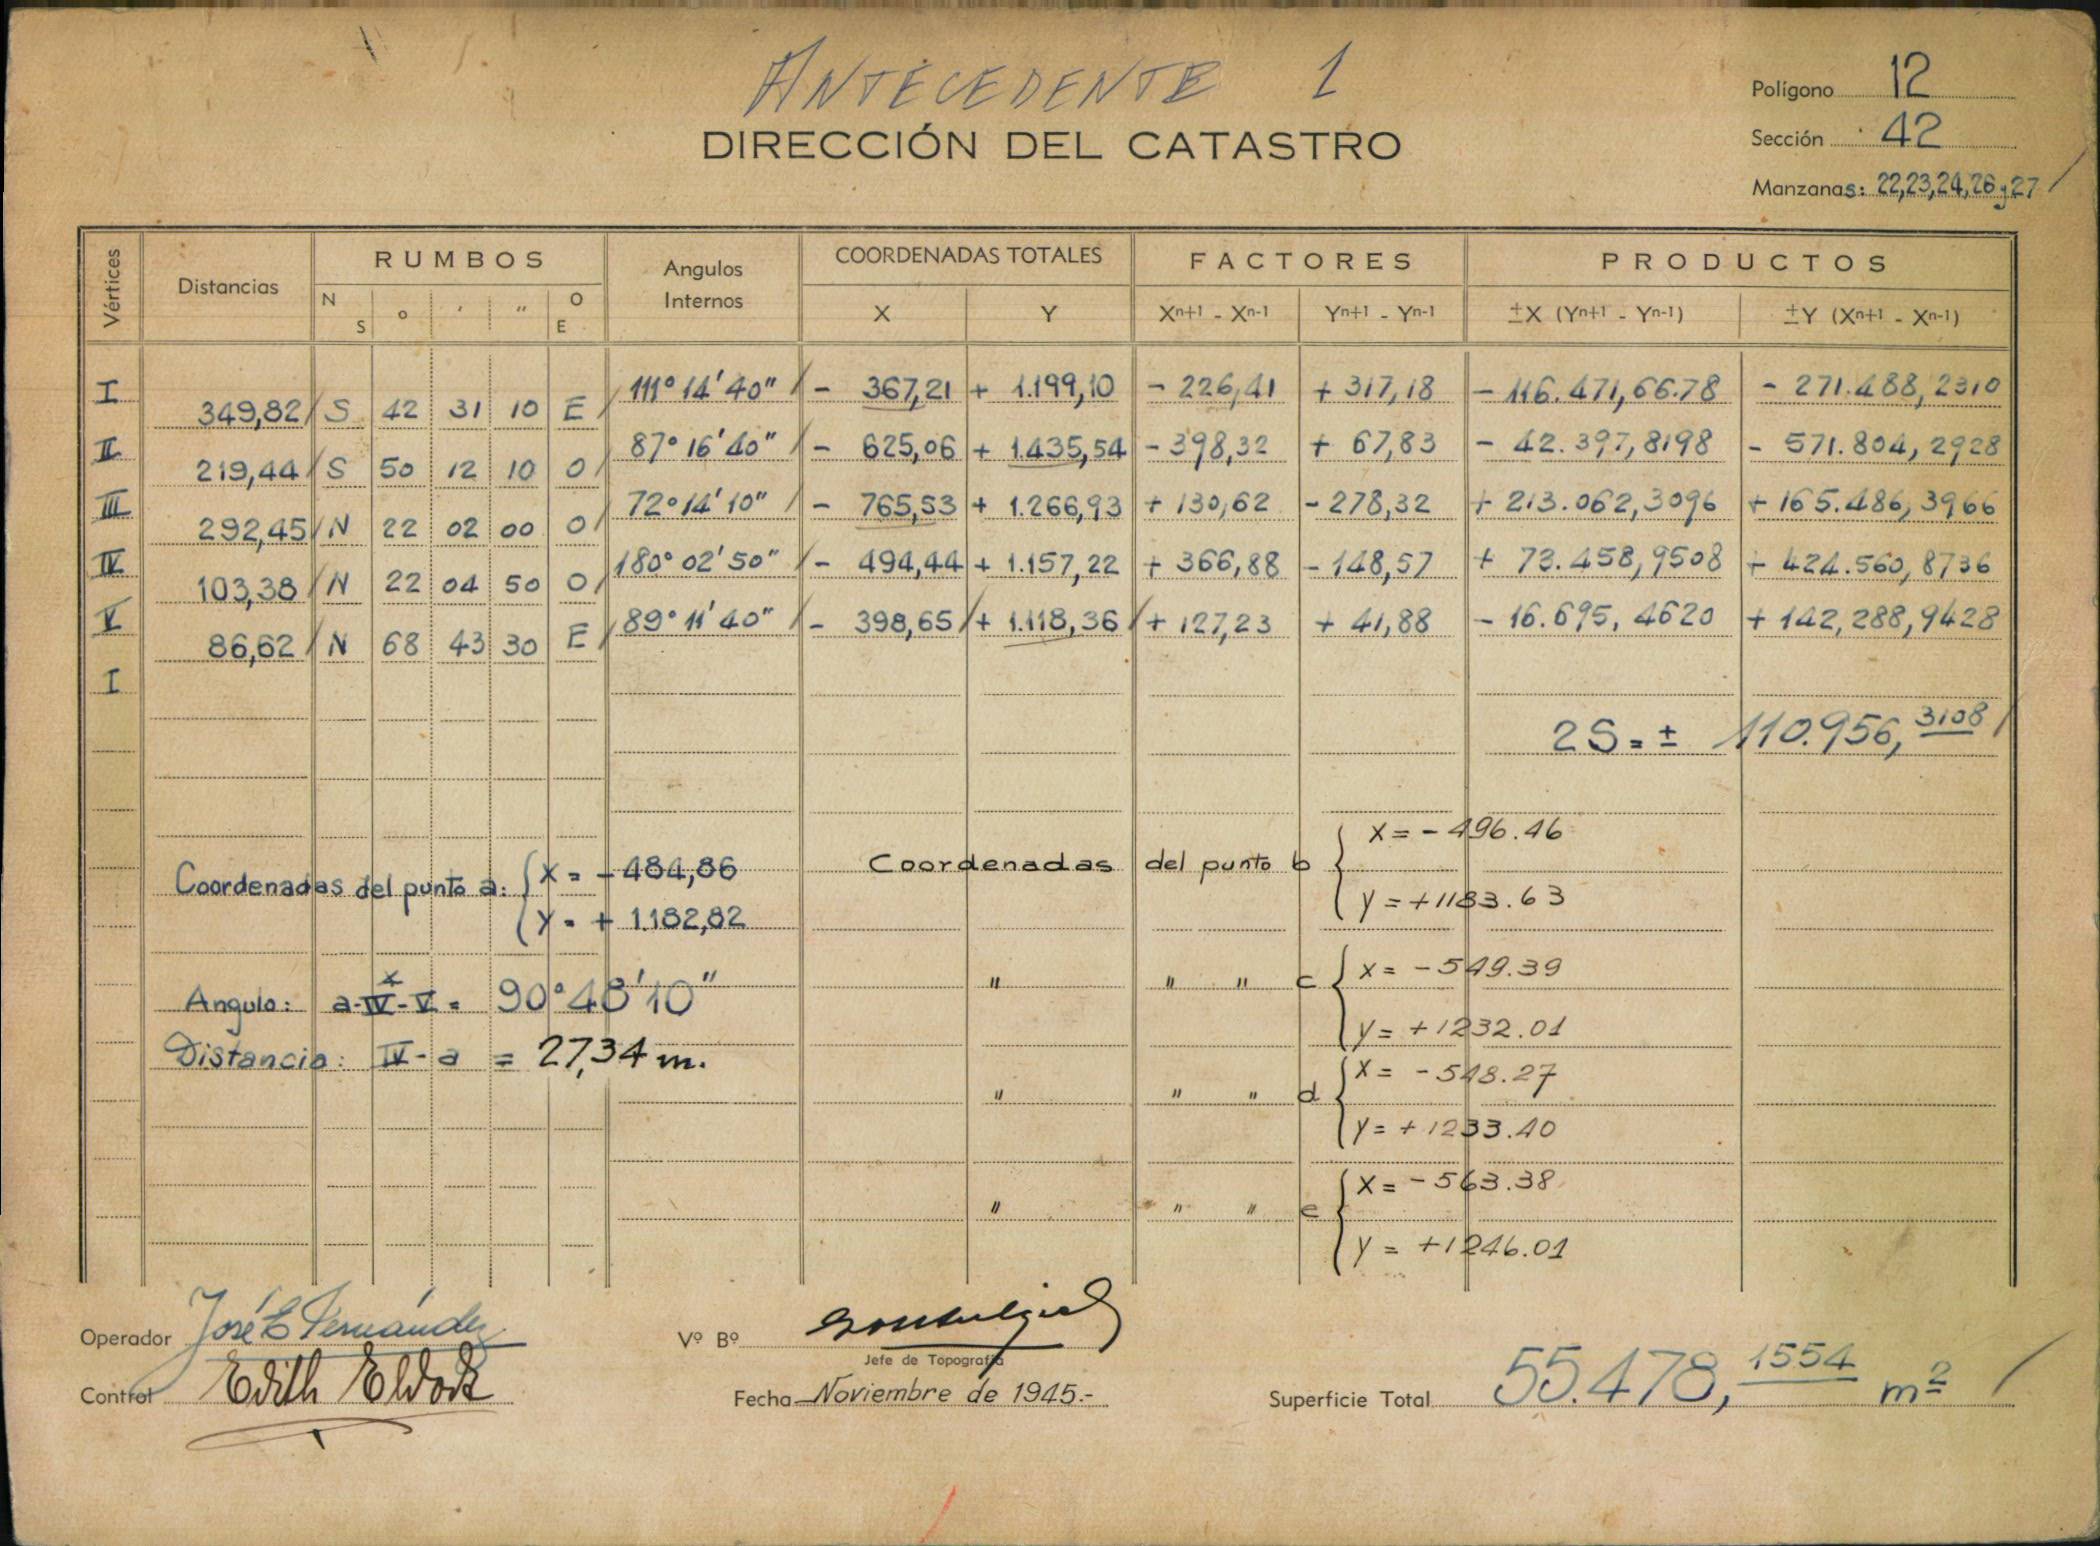 ANTECEDENTE 1
DIRECCIÓN DEL CATASTRO
Polígono 12
Sección 42
Manzanas: 22,23,24,26 y 27
Vértices Distancias RUMBOS Angulos Internos COORDENADAS TOTALES FACTORES PRODUCTOS
N S ° ' " O E X Y Xn+1 - Xn-1 Yn+1 - Yn-1 ±X (Yn+1 - Yn-1) ±Y (Xn+1 - Xn-1)
I 111° 14' 40" - 367,21 + 1.199,10 - 226,41 + 317,18 - 116.471,6678 - 271.488,2310
349,82 S 42 31 10 E
II 87° 16' 40" - 625,06 + 1.435,54 - 398,32 + 67,83 - 42.397,8198 - 571.804,2928
219,44 S 50 12 10 O
III 72° 14' 10" - 765,53 + 1.266,93 + 130,62 - 278,32 + 213.062,3096 + 165.486,3966
292,45 N 22 02 00 O
IV 180° 02' 50" - 494,44 + 1.157,22 + 366,88 - 148,57 + 73.458,9508 + 424.560,8736
103,38 N 22 04 50 O
V 89° 11' 40" - 398,65 + 1.118,36 + 127,23 + 41,88 - 16.695,4620 + 142,288,9428
86,62 N 68 43 30 E
I
2S = ± 110.956,3108
Coordenadas del punto a: X = - 484,86
Y = + 1.182,82
Coordenadas del punto b X = - 496.46
Y = +1183.63
" " " c X = - 549.39
Y = +1232.01
" " " d X = - 548.27
Y = +1233.40
" " " e X = - 563.38
Y = +1246.01
Angulo: a-IV-V = 90° 48' 10"
Distancia: IV - a = 27,34 m.
Operador José E Fernández
Control Edith
Vº Bº
Jefe de Topografía
Fecha Noviembre de 1945.-
Superficie Total 55.478,1554 m2